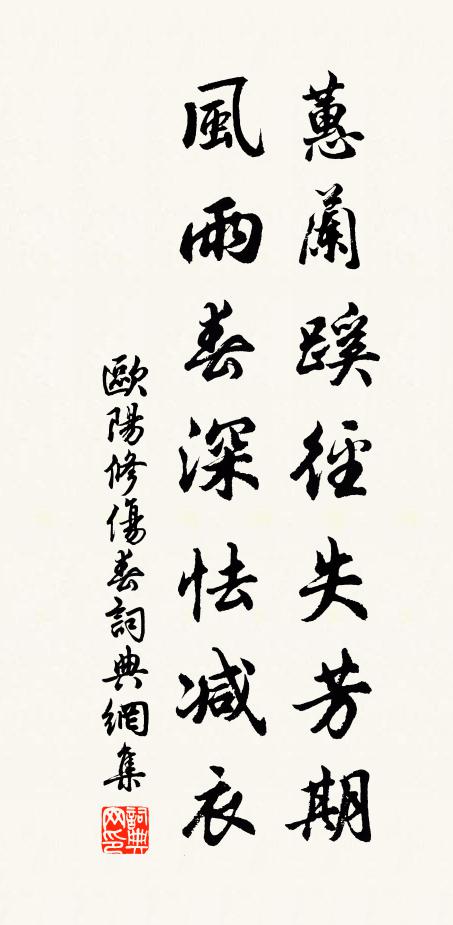 蕙蘭蹊徑失芳期
風雨春深怯減衣
歐陽修傷春詞典網集
詞典网印